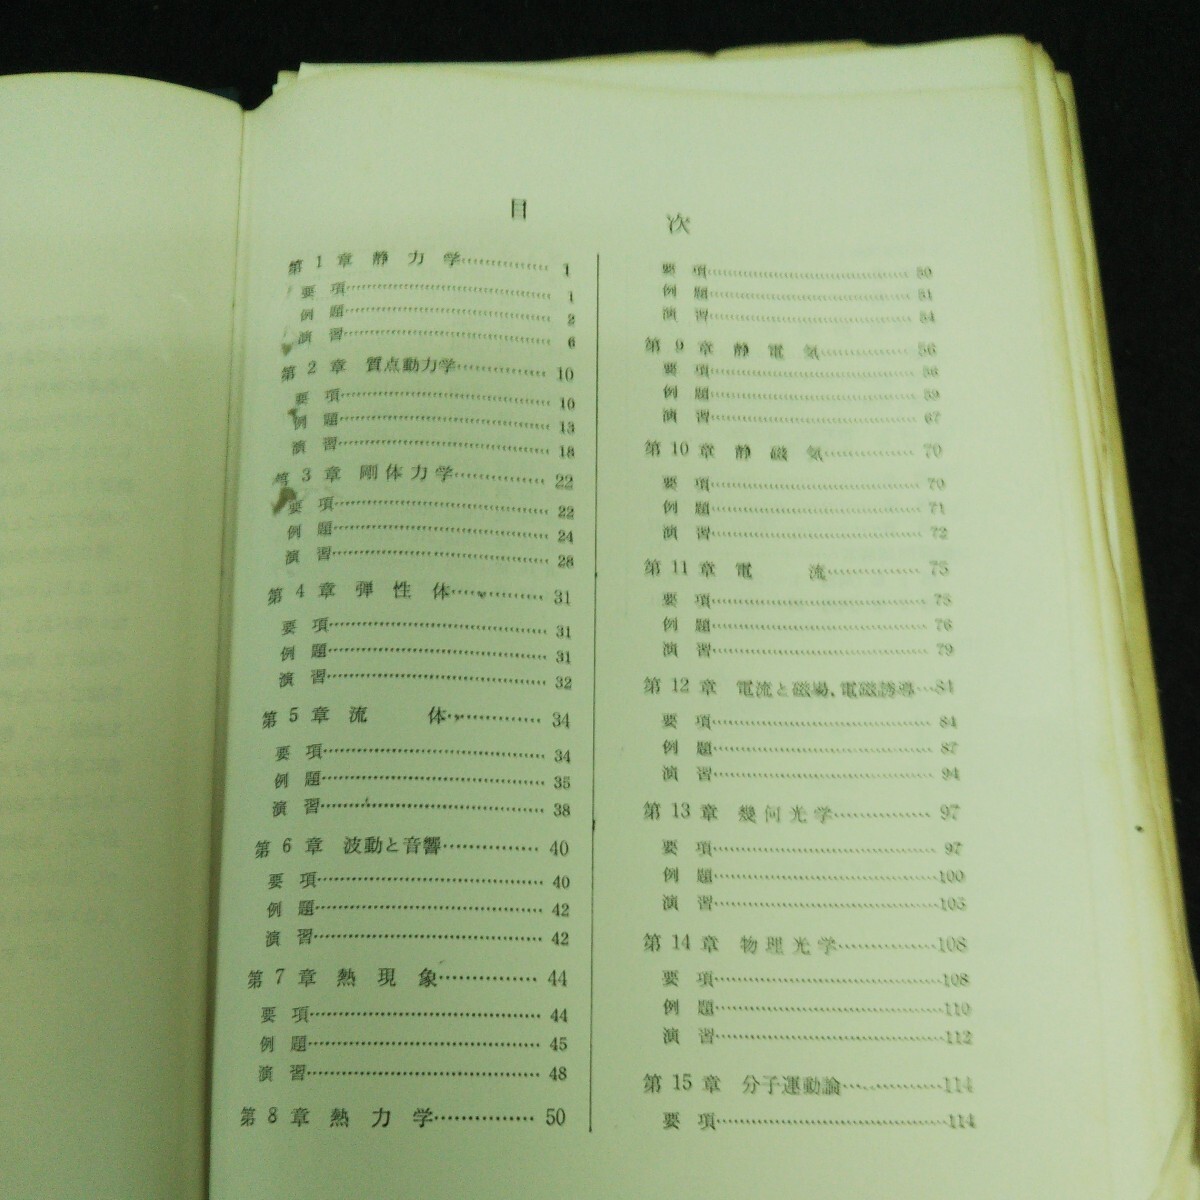 目次
第1章 静力学……………1
要項……………1
例題……………2
演習……………6
第2章 質点動力学……………10
要項……………10
例題……………13
演習……………18
第3章 剛体力学……………22
要項……………22
例題……………24
演習……………28
第4章 弾性体……………31
要項……………31
例題……………31
演習……………32
第5章 流体……………34
要項……………34
例題……………35
演習……………38
第6章 波動と音響……………40
要項……………40
例題……………42
演習……………42
第7章 熱現象……………44
要項……………44
例題……………45
演習……………48
第8章 熱力学……………50
要項……………50
例題……………51
演習……………54
第9章 静電気……………56
要項……………56
例題……………59
演習……………67
第10章 静磁気……………70
要項……………70
例題……………71
演習……………72
第11章 電流……………75
要項……………75
例題……………76
演習……………79
第12章 電流と磁場、電磁誘導…84
要項……………84
例題……………87
演習……………94
第13章 幾何光学……………97
要項……………97
例題……………100
演習……………105
第14章 物理光学……………108
要項……………108
例題……………110
演習……………112
第15章 分子運動論……………114
要項……………114